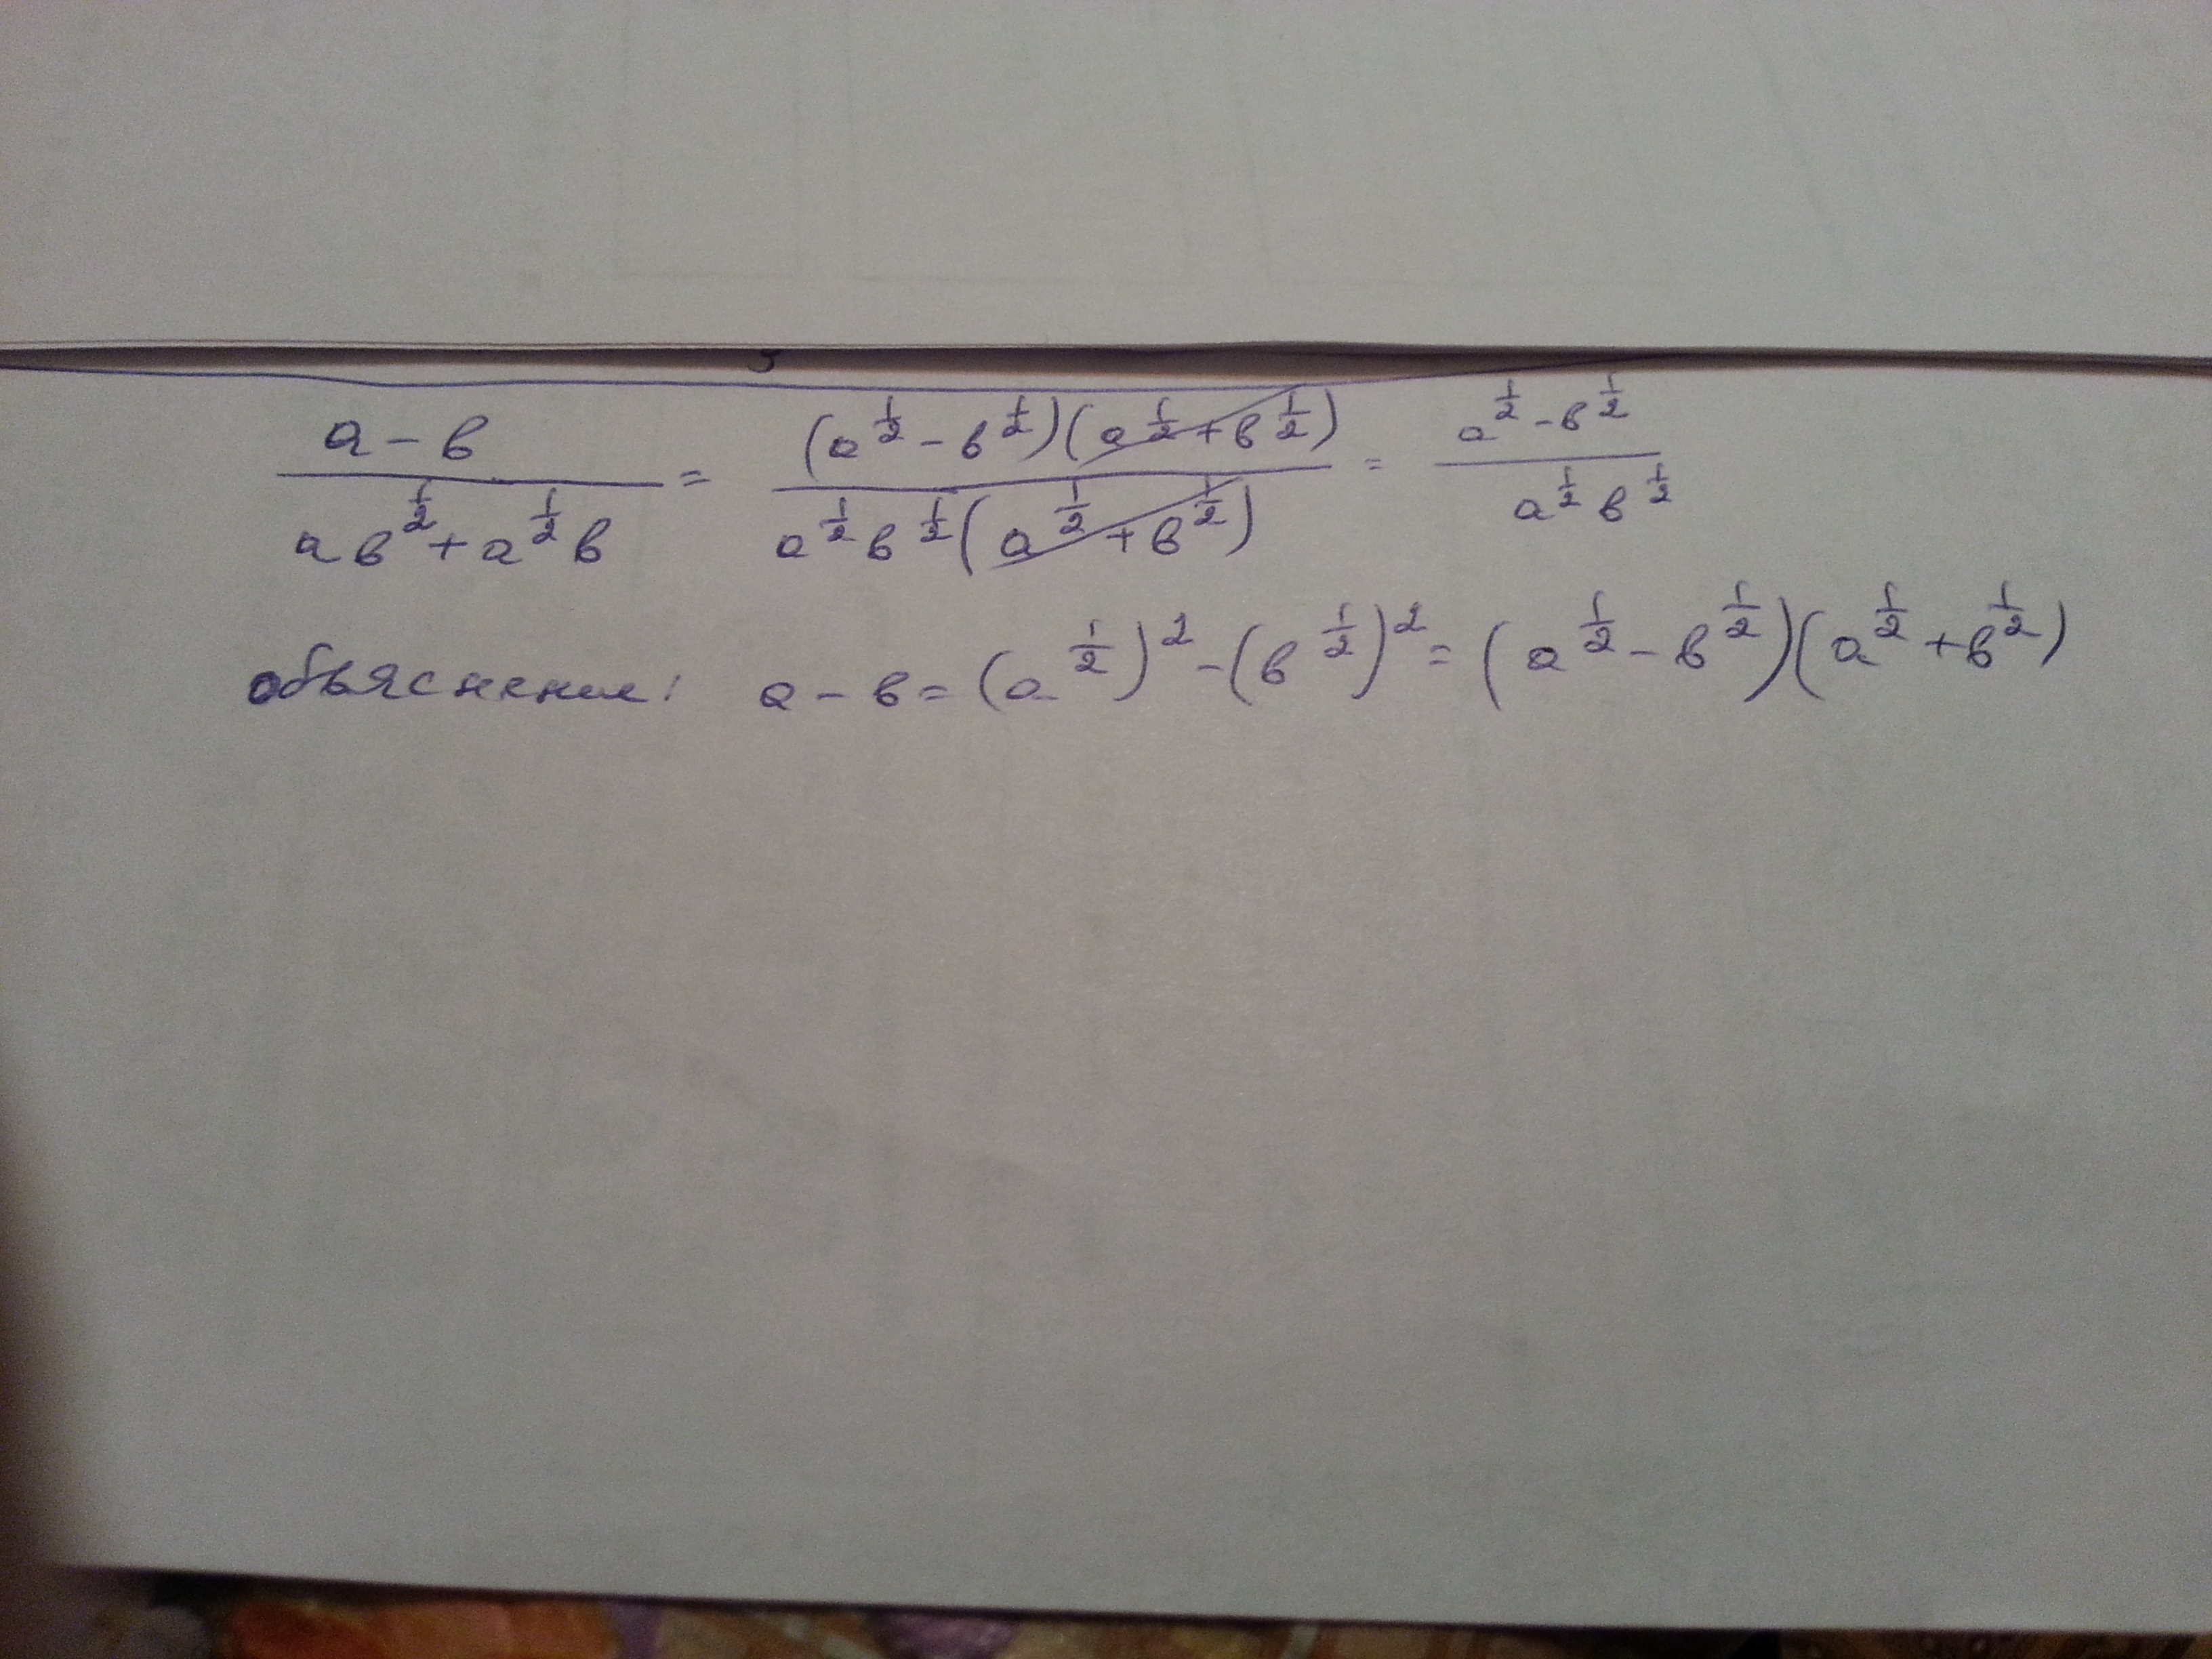 (a - в)/(aв^(1/2) + a^(1/2)в) = ((a^(1/2) - в^(1/2))(a^(1/2) + в^(1/2)))/(a^(1/2)в^(1/2)(a^(1/2) + в^(1/2))) = (a^(1/2) - в^(1/2))/(a^(1/2)в^(1/2))
объяснение: a - в = (a^(1/2))^2 - (в^(1/2))^2 = (a^(1/2) - в^(1/2))(a^(1/2) + в^(1/2))